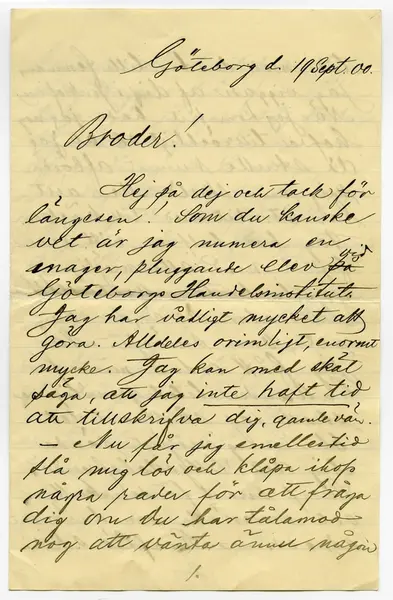 Göteborg d. 19 Sept. 00.
Broder!
Hej på dej och tack för
längesen! Som du kanske
vet är jag numera en
mager, pluggande elev på vid
Göteborgs Handelsinstitut.
Jag har vådligt mycket att
göra. Alldeles orimligt, enormt
mycke. Jag kan med skäl
säga, att jag inte haft tid
att tillskrifva dig, gamle vän.
— Nu får jag emellertid
slå mig lös och klåpa ihop
några rader för att fråga
dig om du har tålamod
nog att vänta ännu någon
1.